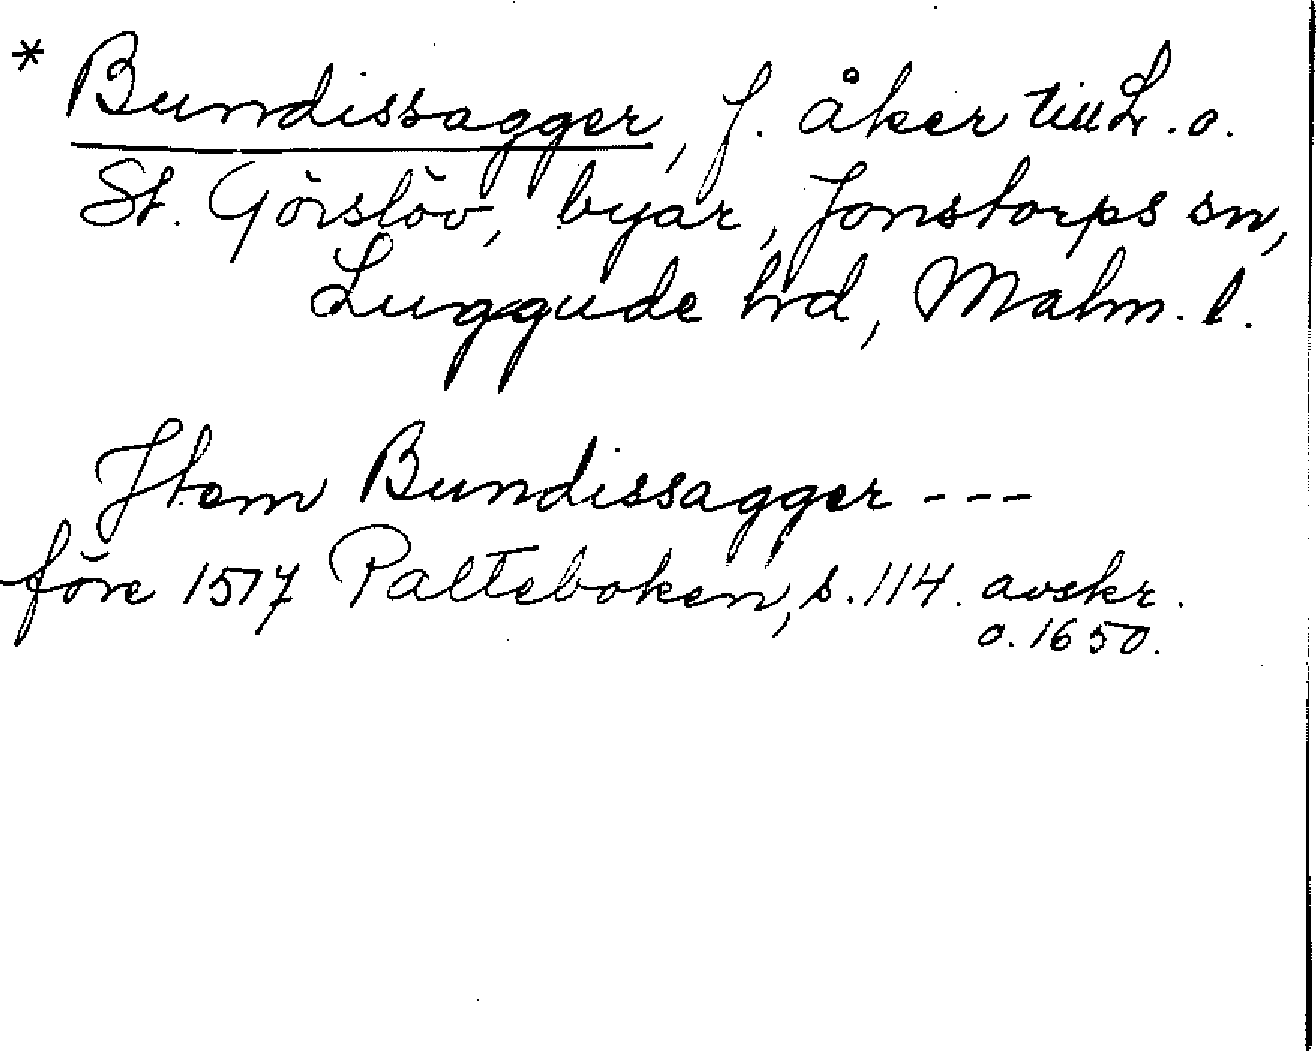 * Bundissagger, f. åker till L. o.
St. Görslöv, byar, Jonstorps sn,
Luggude hrd, Malm. l.
Item Bundissagger - - -
före 1517 Palteboken, s. 114. avskr.
o. 1650.